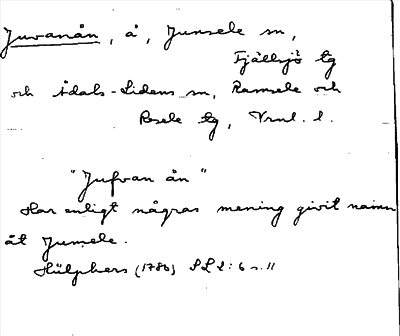 Juvanån, å, Junsele sn,
Fjällsjö tg
och Ådals-Lidens sn, Ramsele och
Resele tg, Vrnl. l.
"Jufvan ån"
Har enligt någras mening givit namn
åt Junsele.
Hülphers (1780) SLl: 6 s. 11